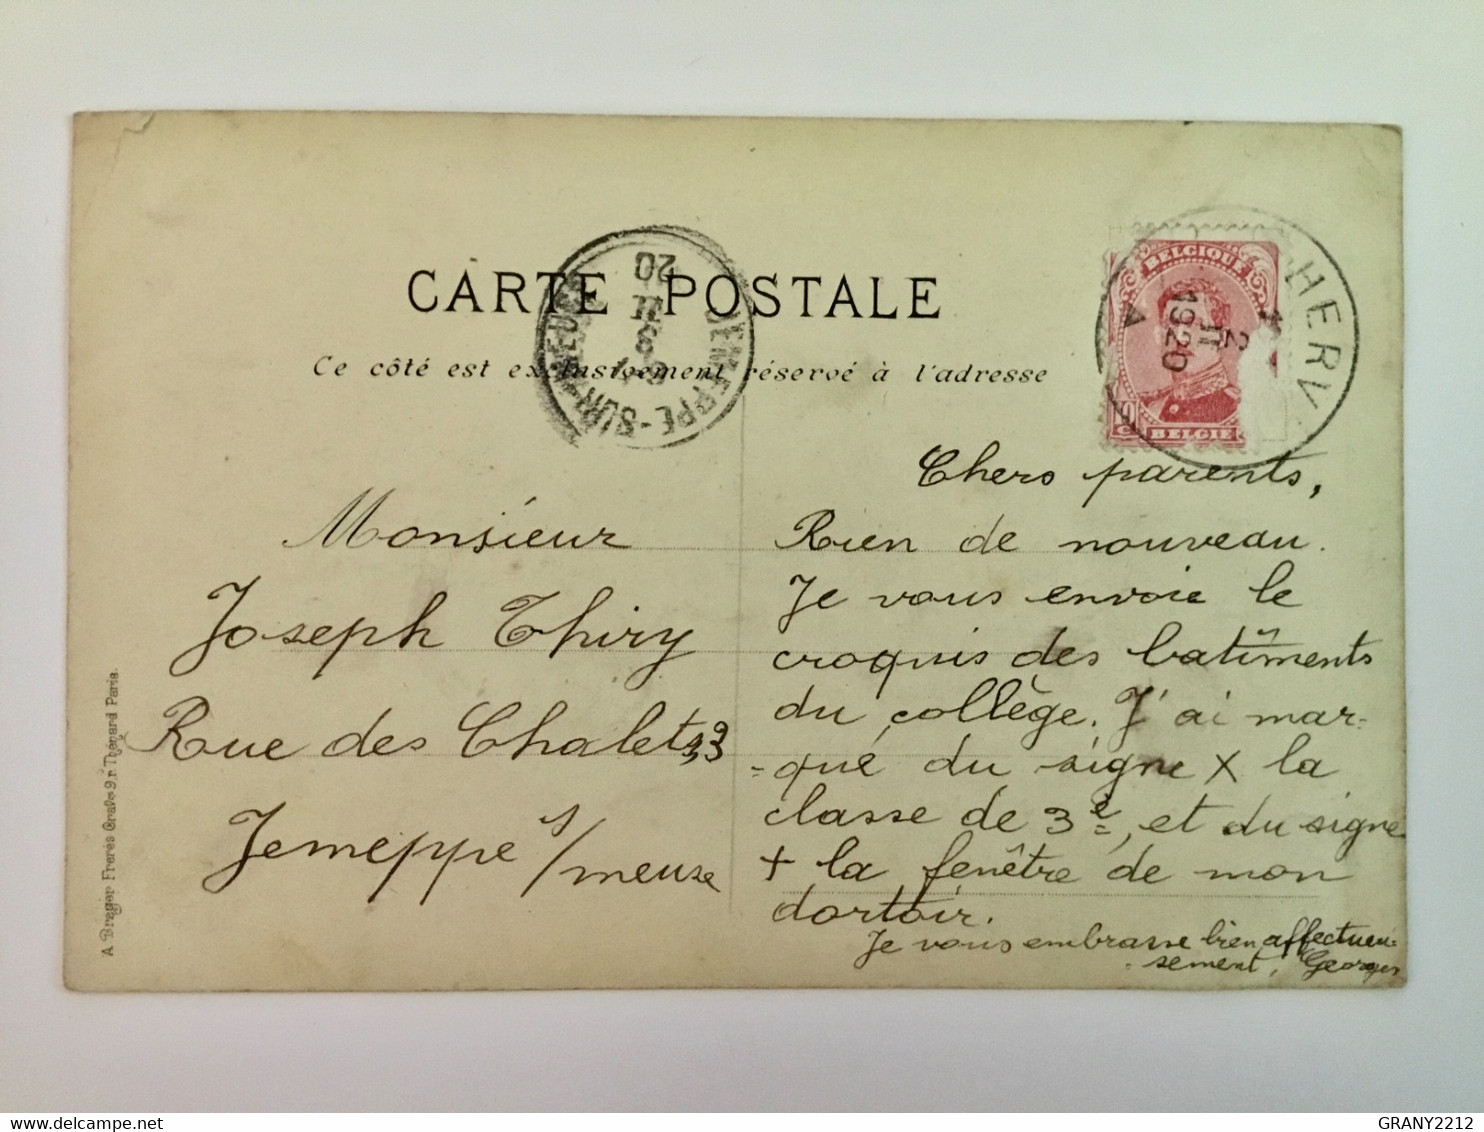 CARTE POSTALE
Ce côté est exclusivement réservé à l'adresse
JEMEPPE-SUR-MEUSE
20
BELGIQUE
BELGIE
HERV
2
II
1920
A
Monsieur
Joseph Thiry
Rue des Chalets 33
Jemeppe s/meuse
Chers parents,
Rien de nouveau.
Je vous envoie le
croquis des batîments
du collège. J'ai mar-
-qué du signe x la
classe de 3e, et du signe
+ la fenêtre de mon
dortoir.
Je vous embrasse bien affectueu-
-sement, Georges
A Breger Freres Grave 9, r Thenard Paris.
GRANY2212